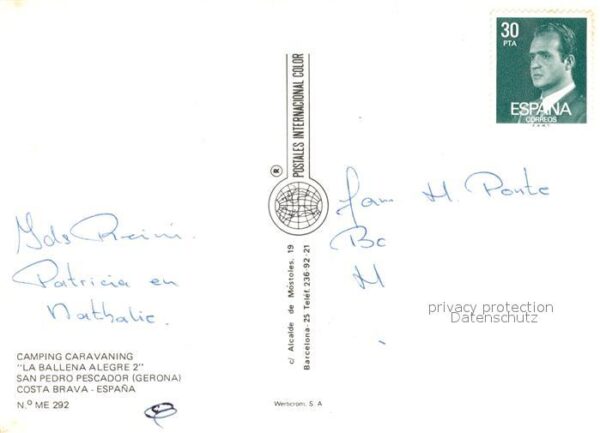 30
PTA
ESPAÑA
CORREOS
POSTALES INTERNACIONAL COLOR
®
c/ Alcalde de Móstoles, 19
Barcelona-25 Teléf. 236-92-21
Fam H. Ponte
Bc
H
Patricia en
Nathalie.
privacy protection
Datenschutz
CAMPING CARAVANING
"LA BALLENA ALEGRE 2"
SAN PEDRO PESCADOR (GERONA)
COSTA BRAVA - ESPAÑA
N.º ME 292
S. A